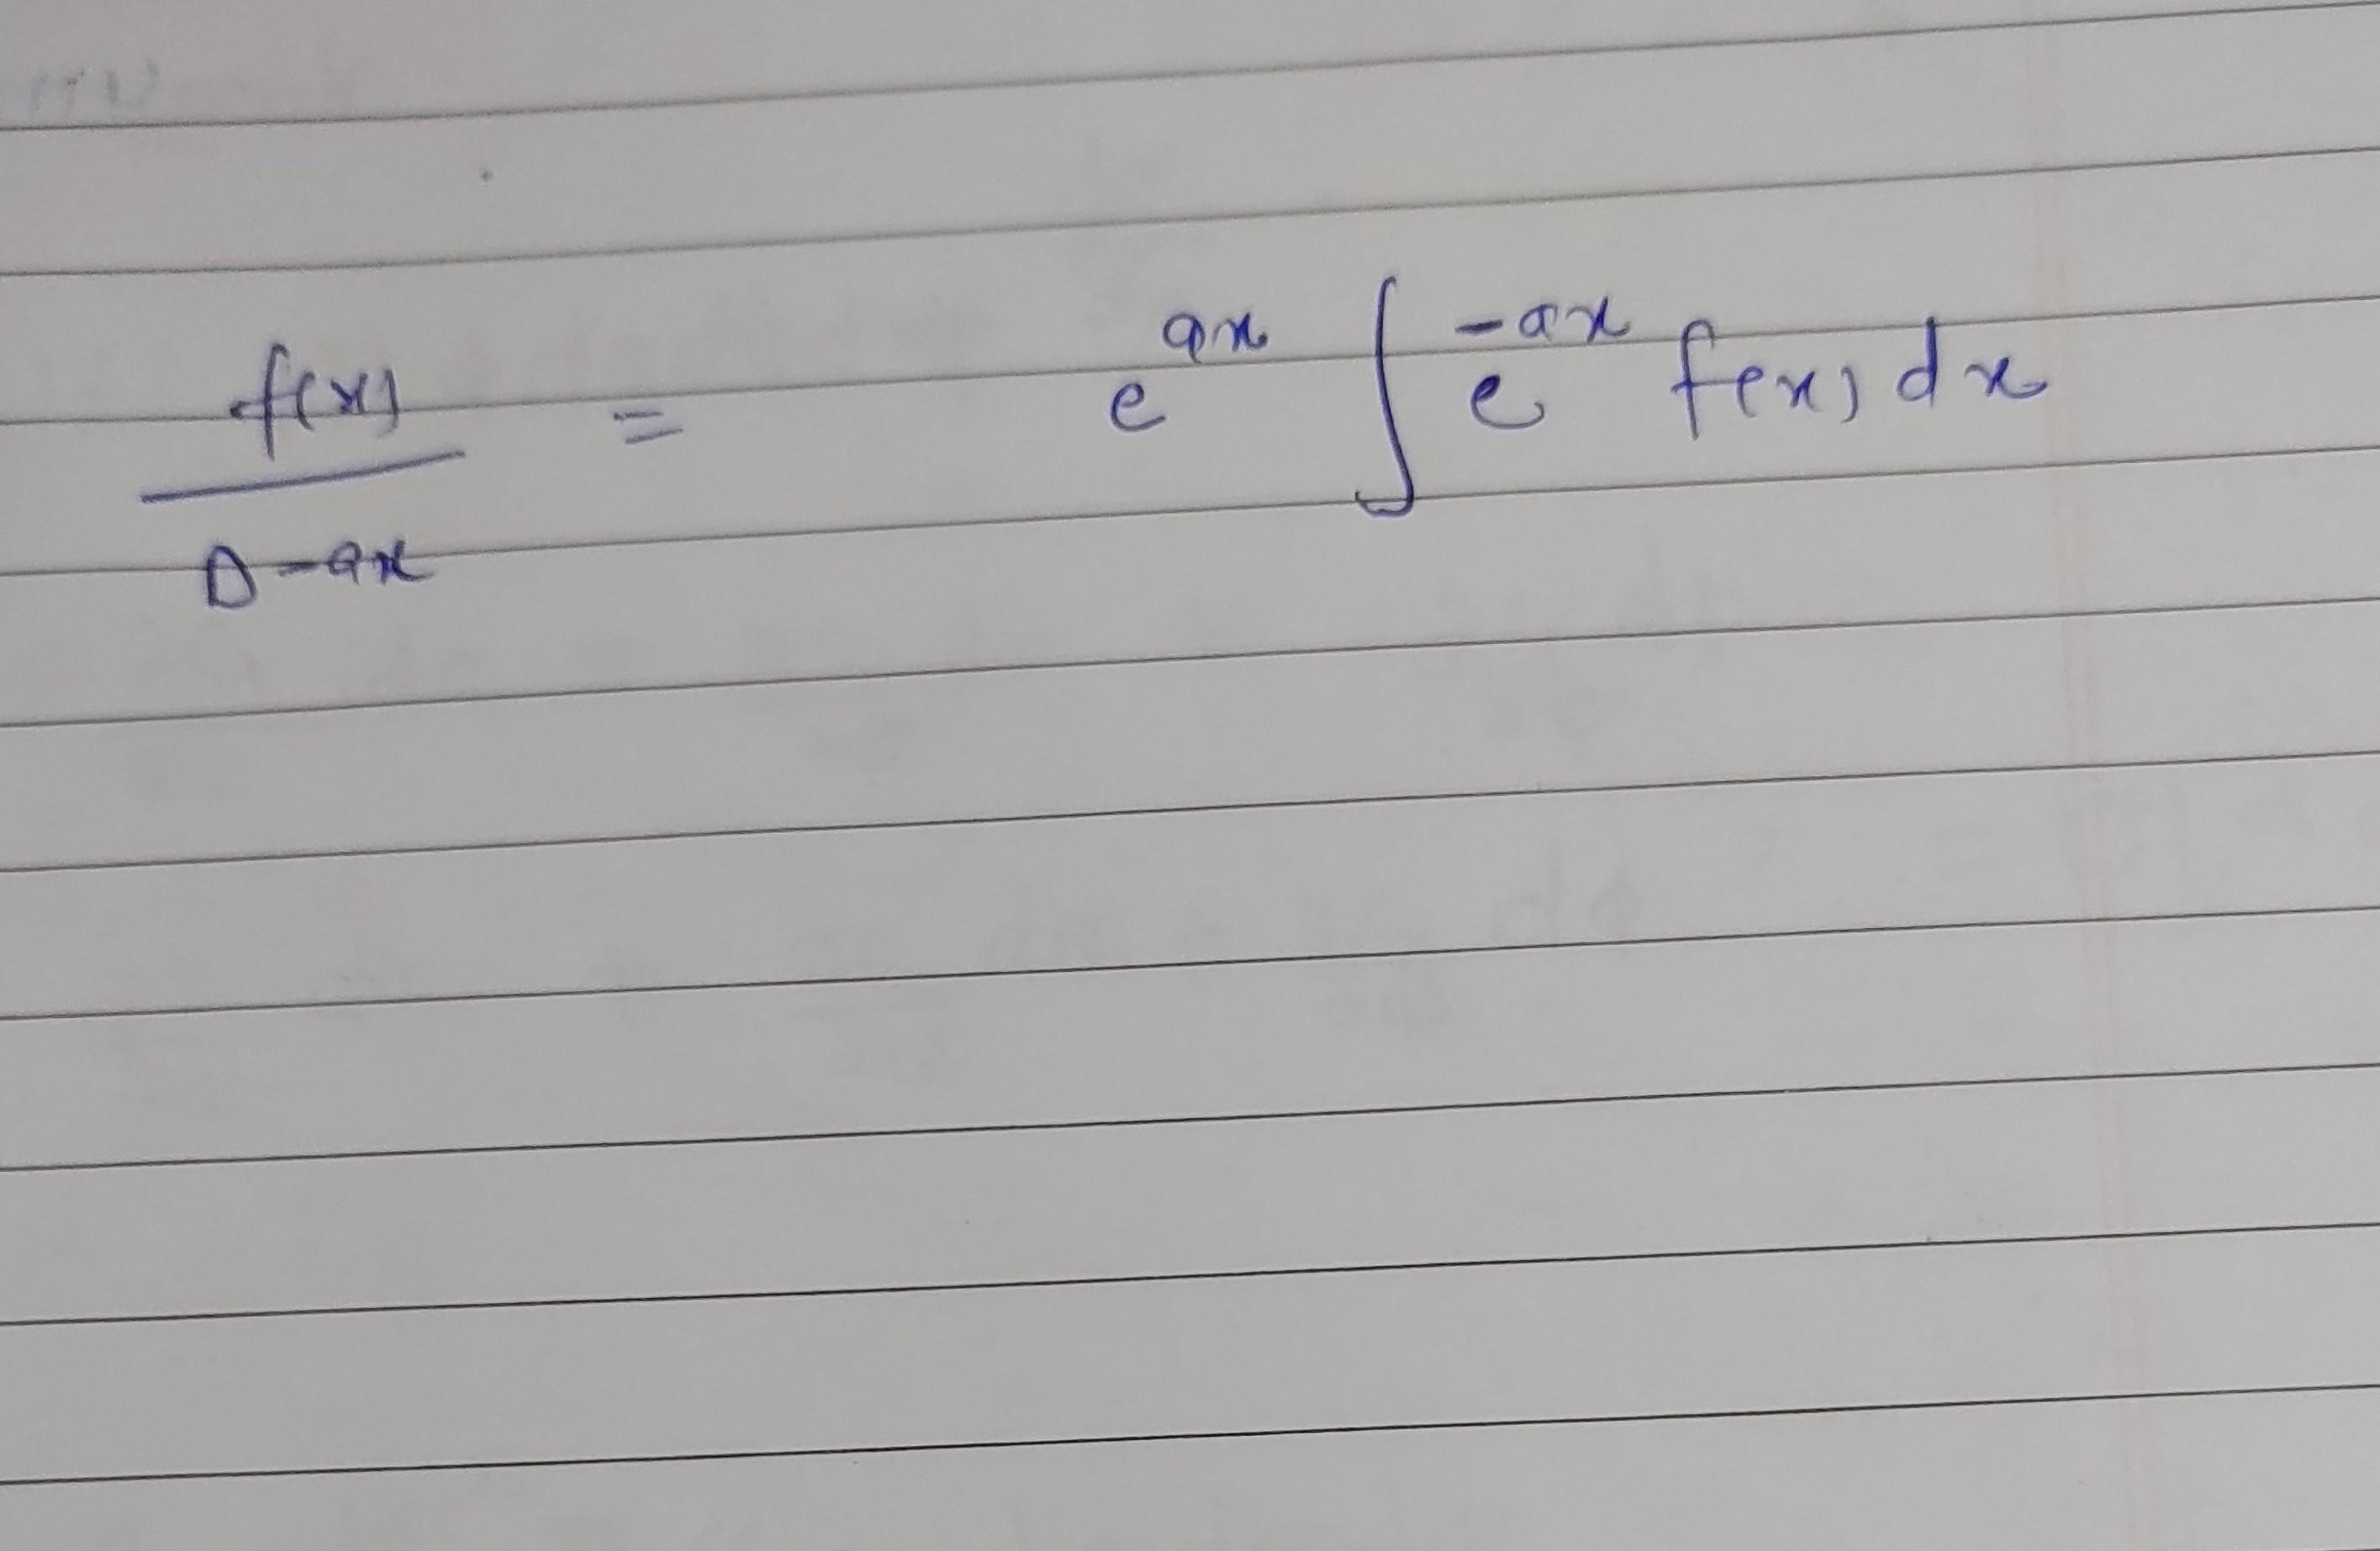 f(x) / D-ax = e^ax ∫ e^-ax f(x) dx